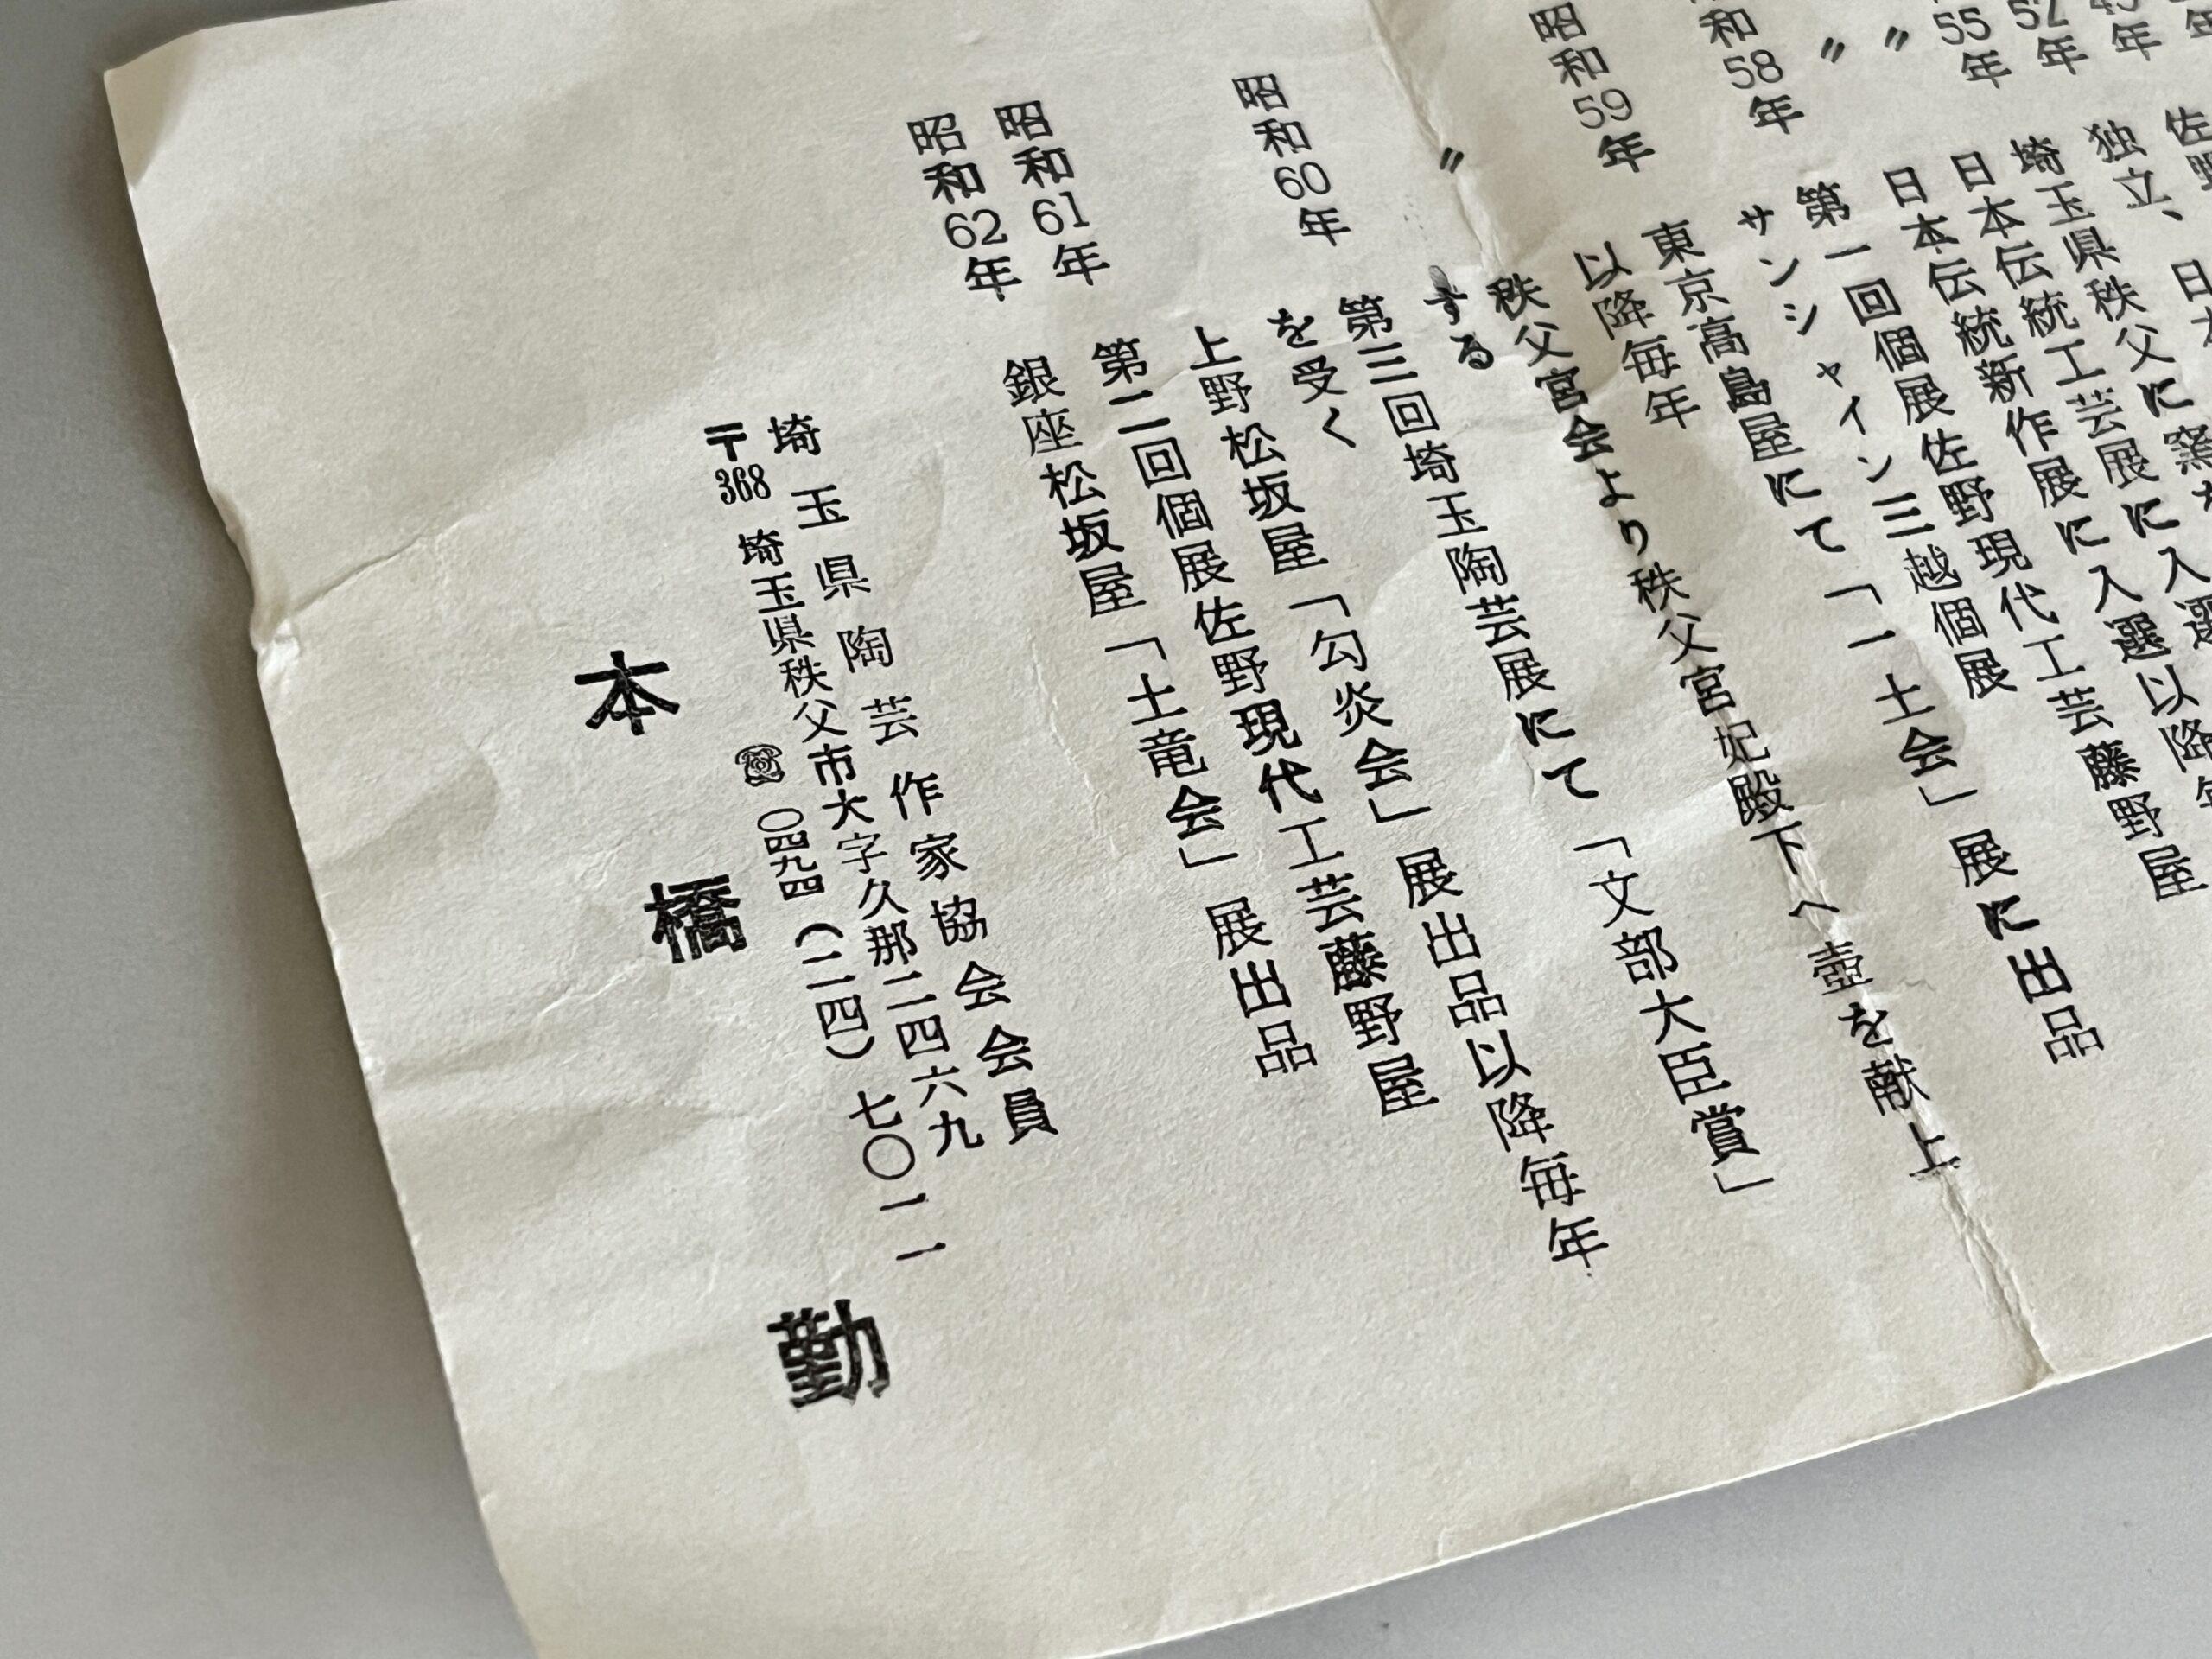 独立、
55年 埼玉県秩父に窯
〃 日本伝統工芸展に入選
〃 日本伝統新作展に入選以降
和58年 第一回個展佐野現代工芸藤野屋
サンシャイン三越個展
昭和59年 東京高島屋にて「一土会」展に出品
以降毎年
〃 秩父宮会より秩父宮妃殿下へ壺を献上
する
昭和60年 第三回埼玉陶芸展にて「文部大臣賞」
を受く
上野松坂屋「勾炎会」展出品以降毎年
昭和61年 第二回個展佐野現代工芸藤野屋
昭和62年 銀座松坂屋「土竜会」展出品
埼玉県陶芸作家協会会員
〒368 埼玉県秩父市大字久那二四六九
☎〇四九四(二四)七〇一一
本橋勤